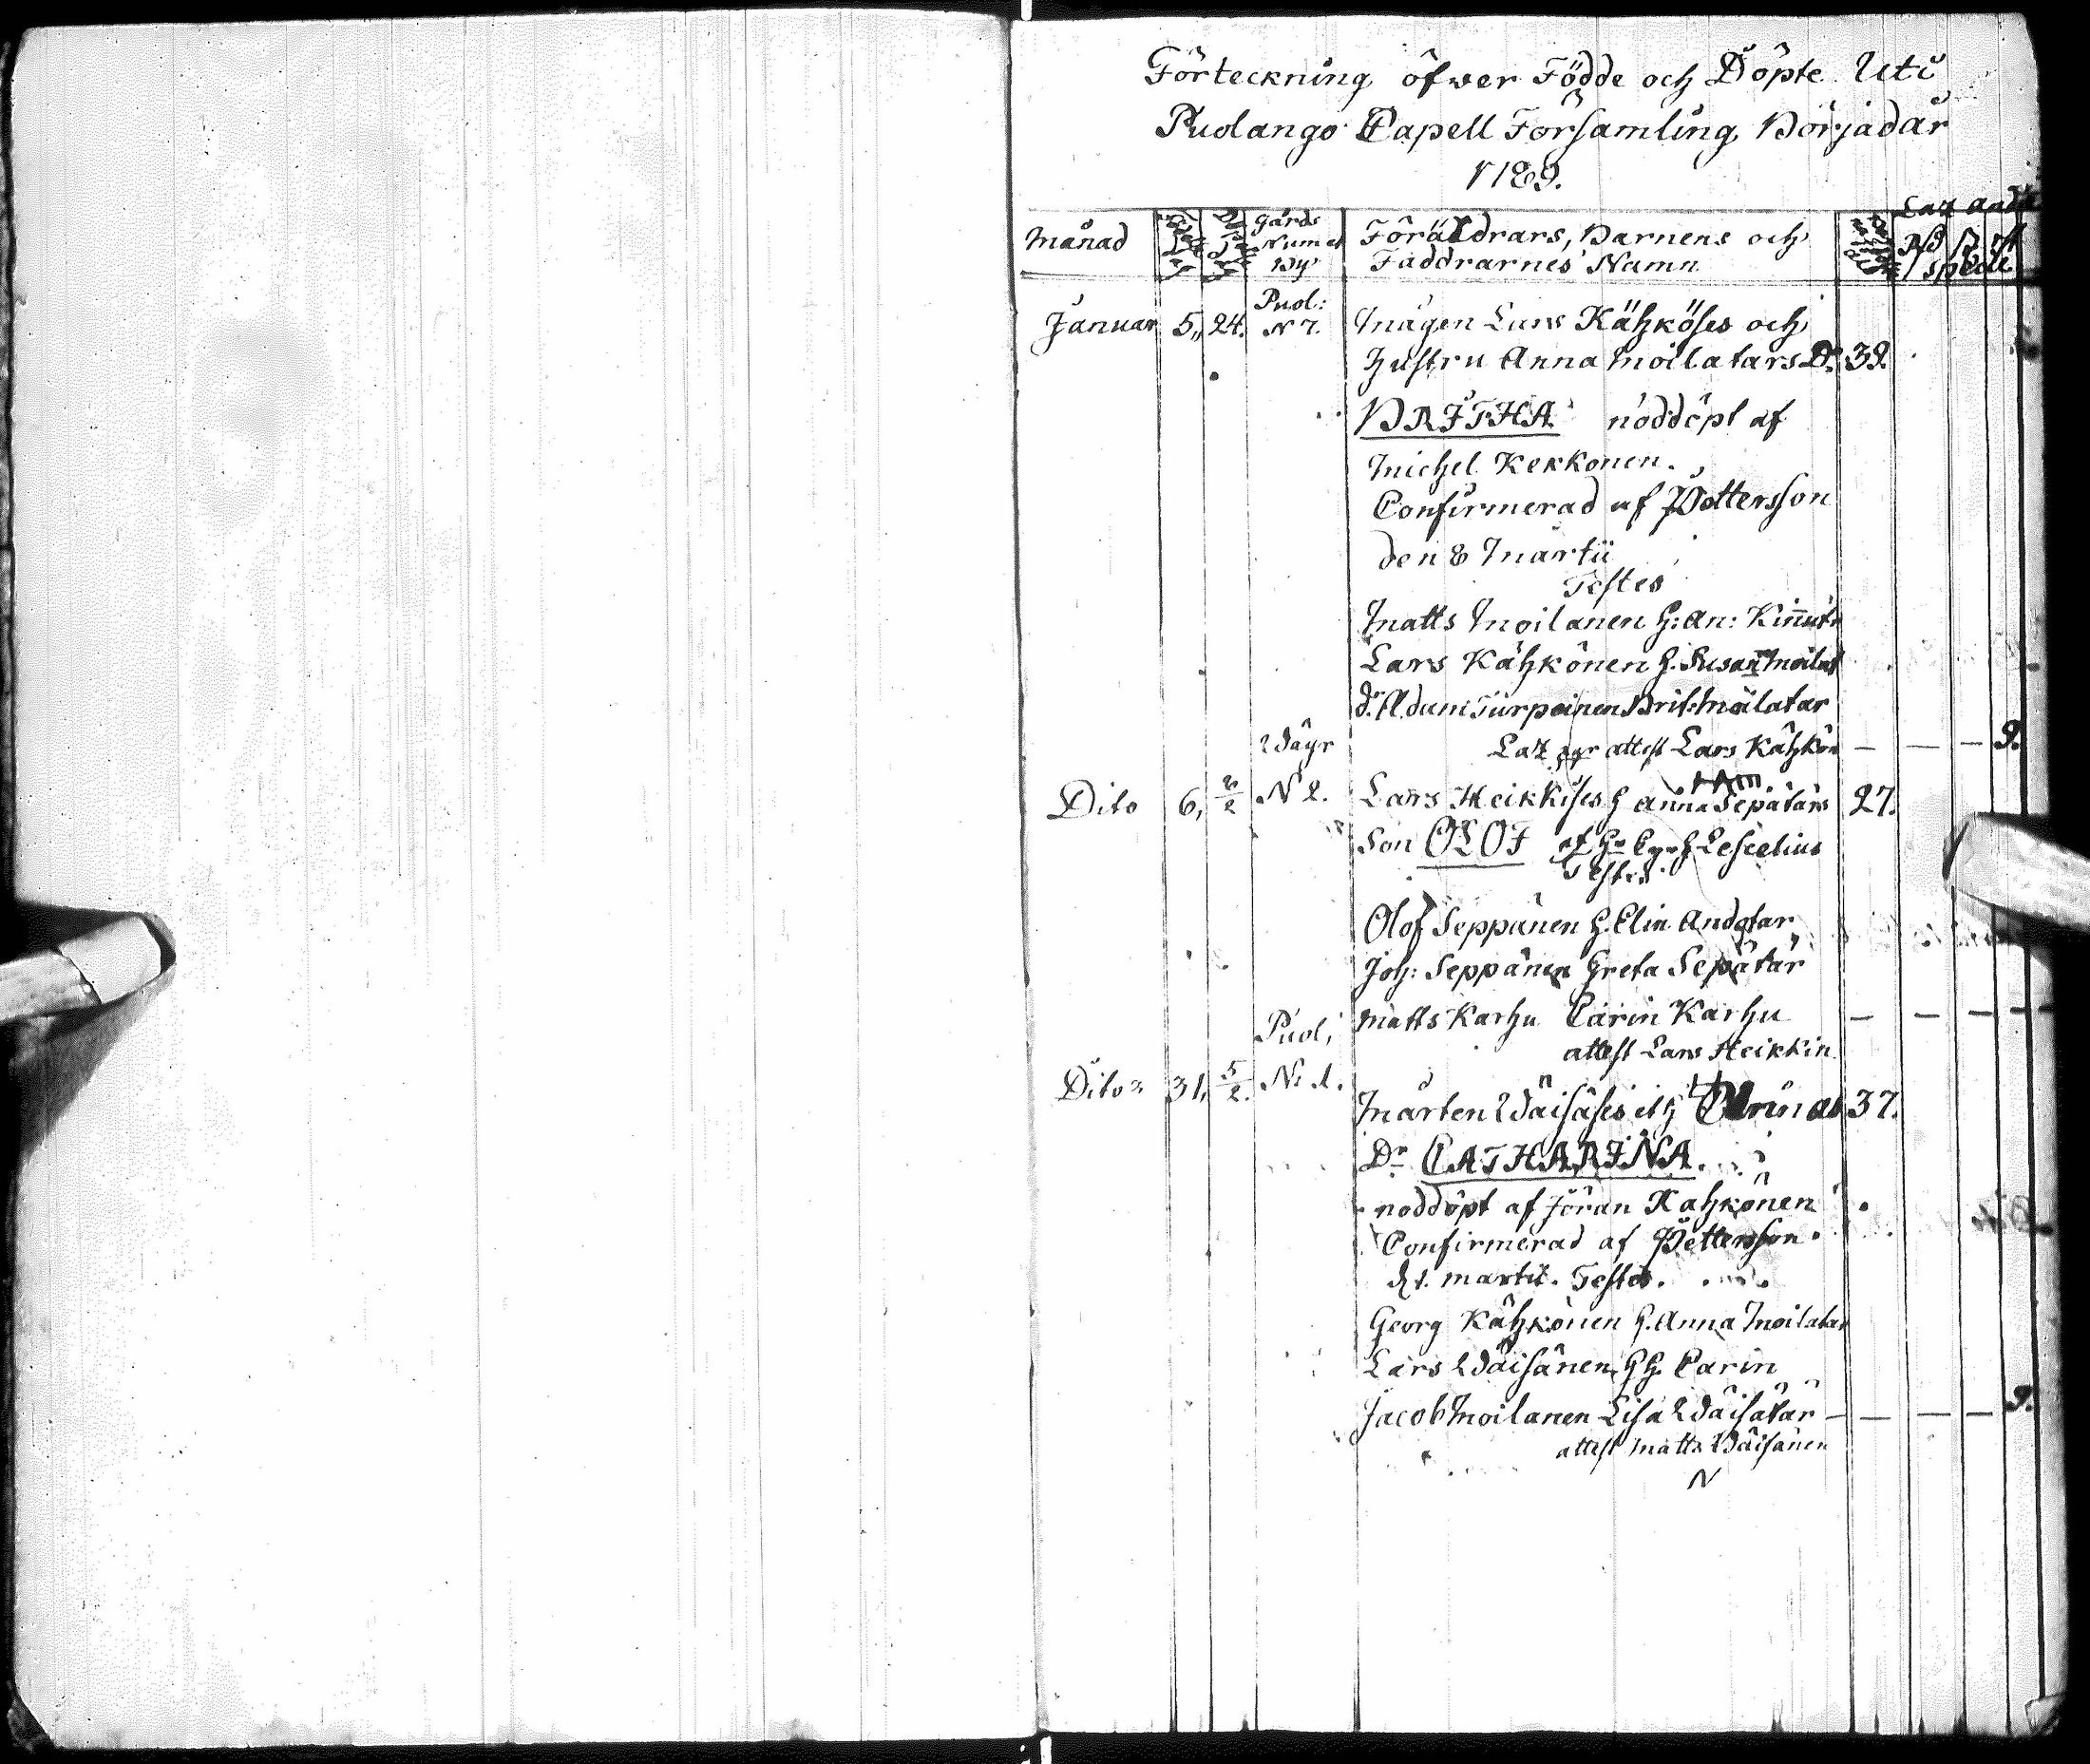 Förteckning öfwer Födde och Döpte Uti
Puolango Capell Församling Börjadår
1789.
Månad
Gårds
Num et
By
Föräldrars, Barnens och
Faddrarnes Namn
Januar 5,, 24.
Puol:
N 7.
Mågen Lars Kähköses och
Hustru Anna Moilatars Dr. 39.
BRITHA nöddöpt af
Michel Kekkonen.
Confirmerad af Pettersson
den 8 Martii
Testes
Matts Moilanen H: An: Kinnut:
Lars Kähkönen H. Susan Moilat
d. Adam Turpeinen Brit: Moilatar
attest Lars Kähkön — — — 9.
Dito 6, 2/2
Wäyr
N 2.
Lars Heikkises H Anna Sepätärs 27.
Son OLOF af Lescelius
Testes
Olof Seppänen H. Elin Andotar
Joh: Seppänen Greta Sepätär
Matts Karhu Carin Karhu — — — —
attest Lars Heikkin
Dito 31, 5/2.
Puol;
N: 1.
Mårten Wäisäses et H 37.
Dr CATHARINA.
noddöpt af Jöran Kahkönen
Confirmerad af Pettersson
d 1. Martii. Testes.
Georg Kähkönen H. Anna Moilatar
Lars Wäisänen H. Carin
Jacob Moilanen Lisa Wäisätär — — — — 9.
attest Matts Wäisänen
N